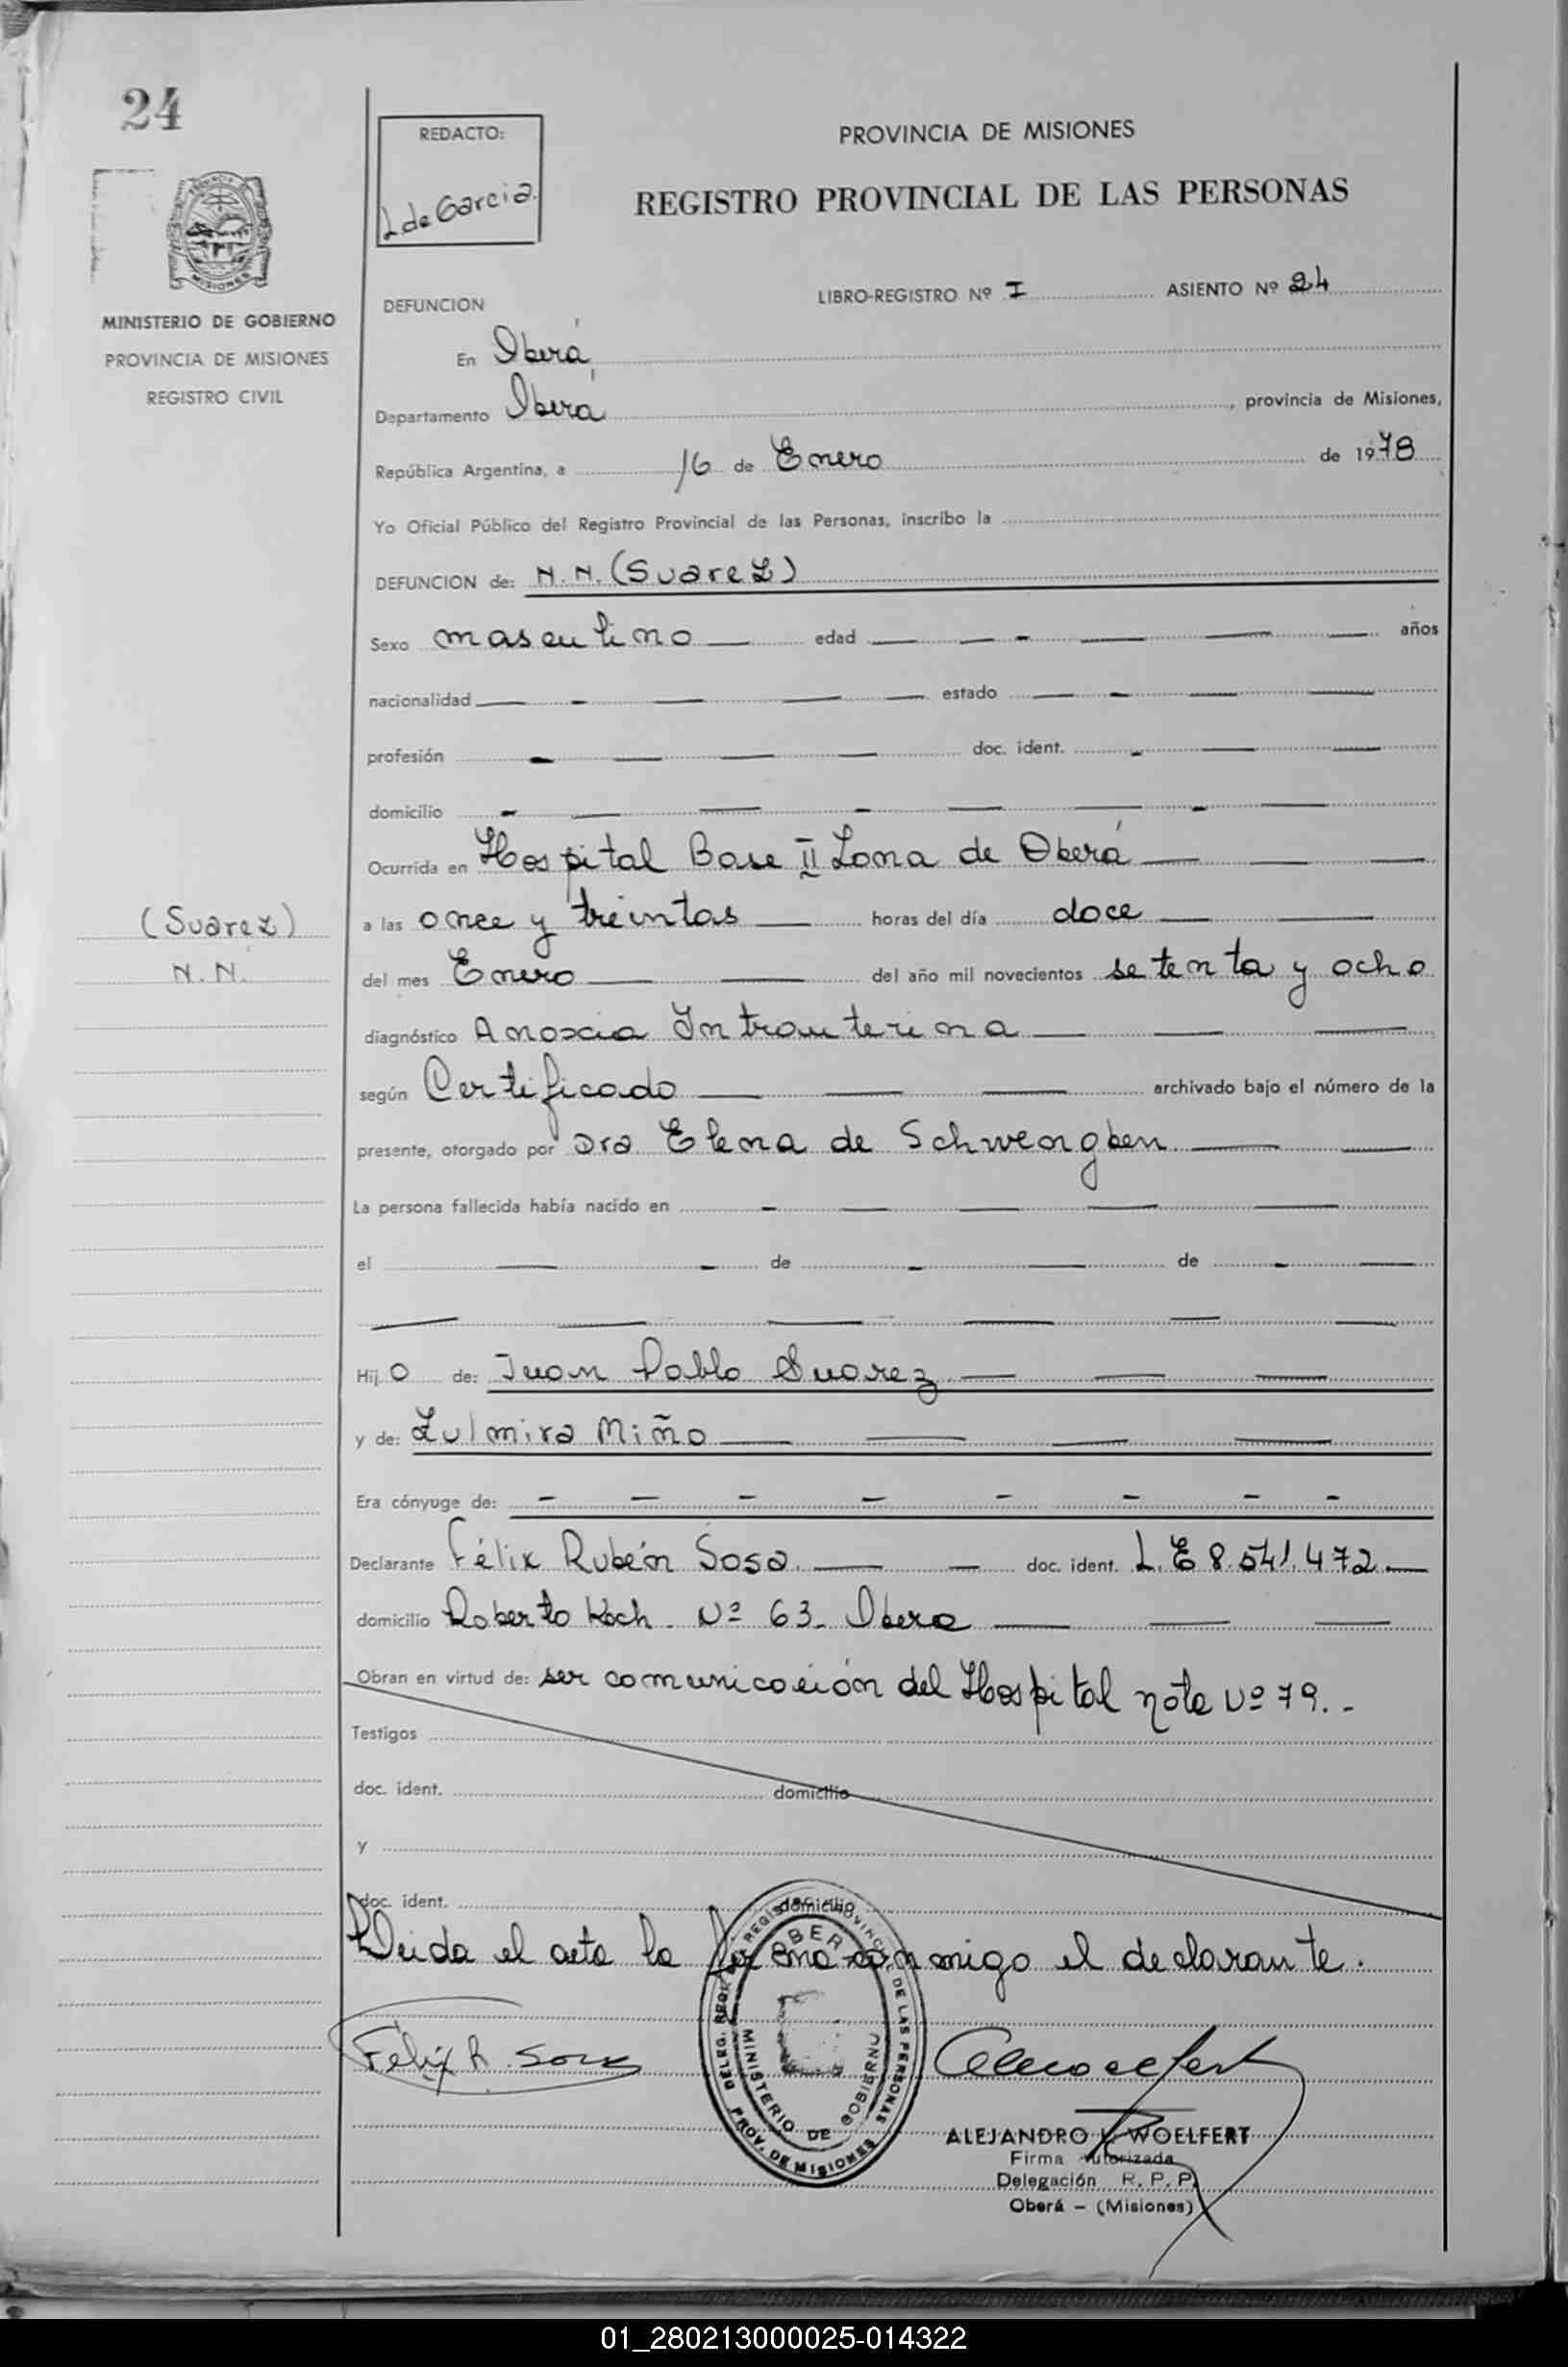 24
REDACTO:
L de Garcia.
PROVINCIA DE MISIONES
REGISTRO PROVINCIAL DE LAS PERSONAS
MINISTERIO DE GOBIERNO
PROVINCIA DE MISIONES
REGISTRO CIVIL
LIBRO-REGISTRO Nº I ASIENTO Nº 24
DEFUNCION
En Oberá
Departamento Oberá, provincia de Misiones,
República Argentina, a 16 de Enero de 1978
Yo Oficial Público del Registro Provincial de las Personas, inscribo la
DEFUNCION de: N.N. (Suarez)
Sexo masculino edad años
nacionalidad estado
profesión doc. ident.
domicilio
Ocurrida en Hospital Base II Zona de Oberá
(Suarez)
N.N.
a las once y treintas horas del día doce
del mes Enero del año mil novecientos setenta y ocho
diagnóstico Anoxia Intrauterina
según Certificado archivado bajo el número de la
presente, otorgado por Dra Elena de
La persona fallecida había nacido en
el de de
Hijo de: Juan Pablo Suarez
y de: Zulmira Miño
Era cónyuge de:
Declarante Félix Rubén Sosa. doc. ident. L.E 8.541.472.
domicilio Roberto Koch. Nº 63. Obera
Obran en virtud de: ser comunicación del Hospital nota Nº 79..
Testigos
doc. ident. domicilio
y
doc. ident. domicilio
Leida el acta la firma conmigo el declarante.
Félix R. Sosa
DELEG. REGISTRO PROVINCIAL DE LAS PERSONAS
OBERA
MINISTERIO DE GOBIERNO
PROV. DE MISIONES
ALEJANDRO WOELFERT
Firma Autorizada
Delegación R. P. P.
Oberá - (Misiones)
01_280213000025-014322